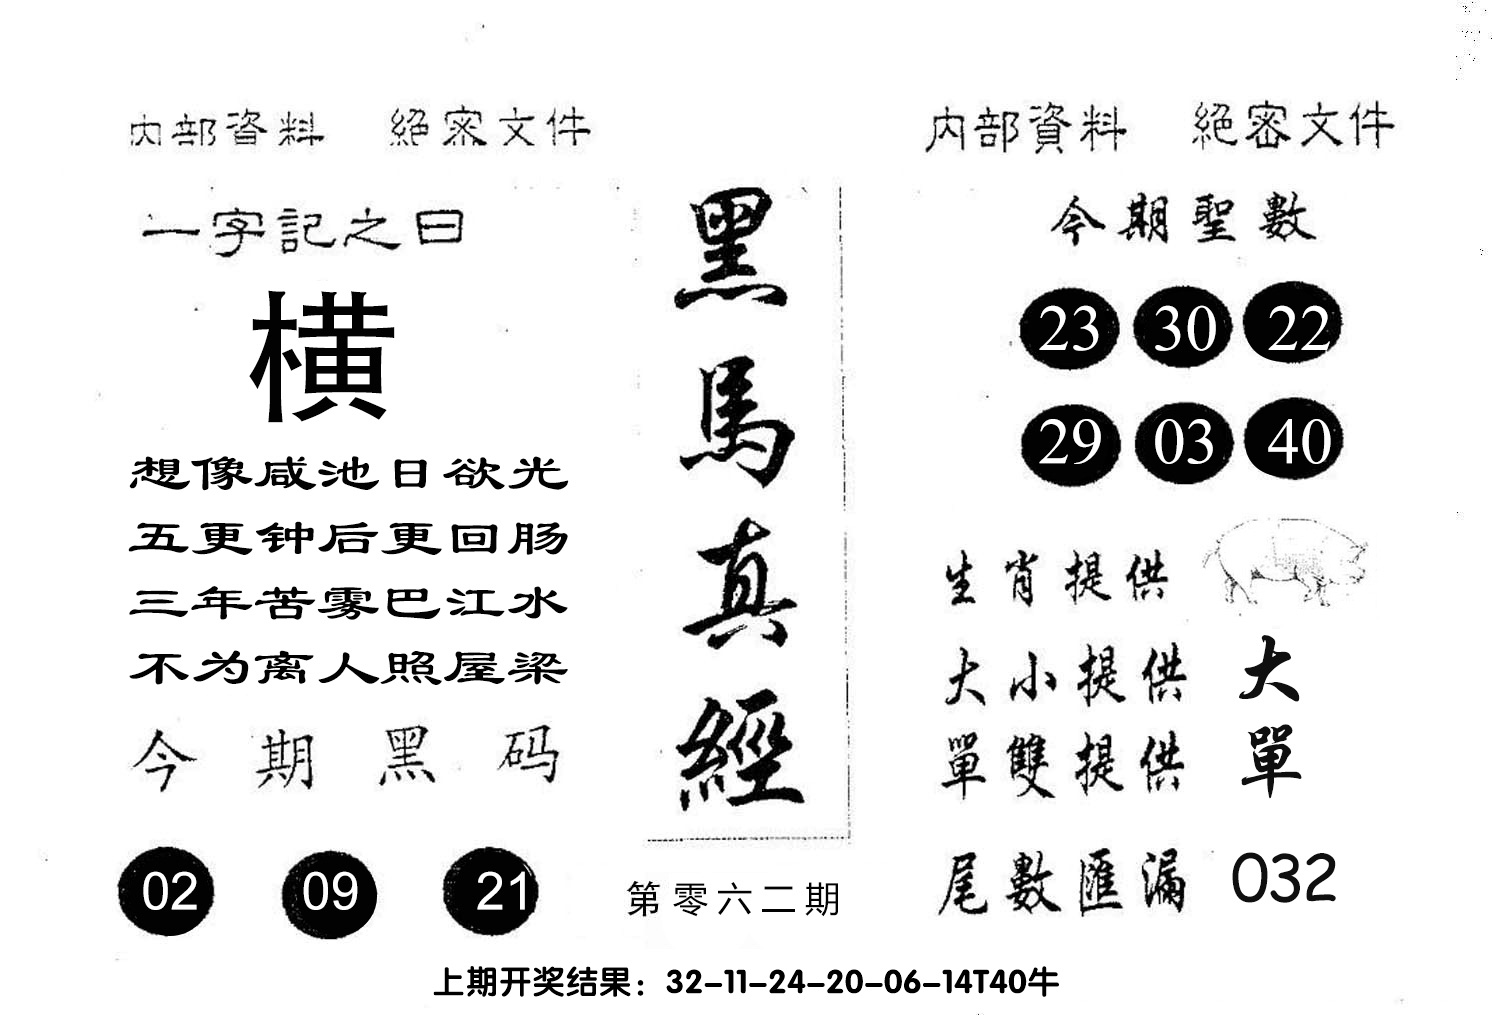 内部資料 絕密文件
一字記之曰
横
想像咸池日欲光
五更钟后更回肠
三年苦雾巴江水
不为离人照屋梁
今期黑码
02 09 21
黑馬真經
第零六二期
内部資料 絕密文件
今期聖數
23 30 22
29 03 40
生肖提供
大小提供 大
單雙提供 單
尾數匯漏 032
上期开奖结果：32-11-24-20-06-14T40牛